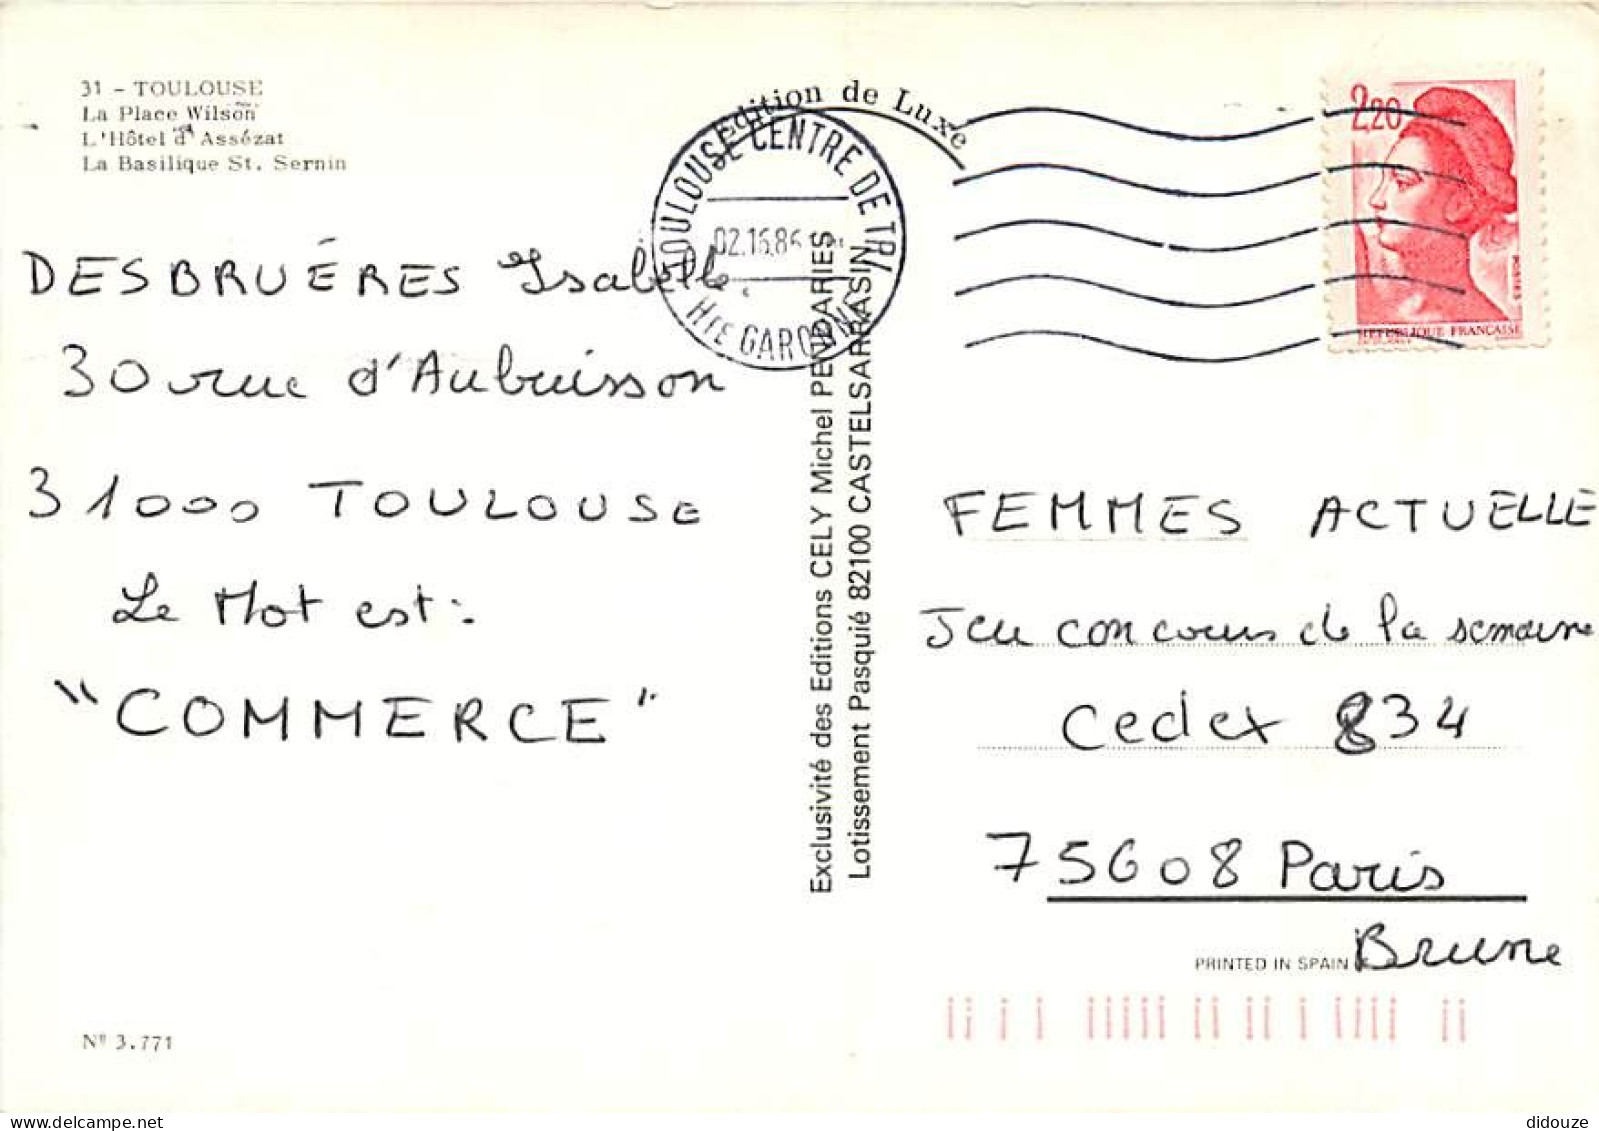 31 - TOULOUSE
La Place Wilson
L'Hôtel d'Assézat
La Basilique St. Sernin
Edition de Luxe
TOULOUSE CENTRE DE TRI
02.1686
Hte GARONNE
2,20
POSTES
REPUBLIQUE FRANÇAISE
DESBRUÉRES Isabelle.
30 rue d'Aubuisson
31000 TOULOUSE
Le Mot est :
"COMMERCE"
Exclusivité des Editions CELY Michel PENDARIES
Lotissement Pasquié 82100 CASTELSARRASIN
FEMMES ACTUELLE
Jeu concours de la semaine
Cedex 834
75608 Paris
Brune
PRINTED IN SPAIN
Nº 3.771
didouze